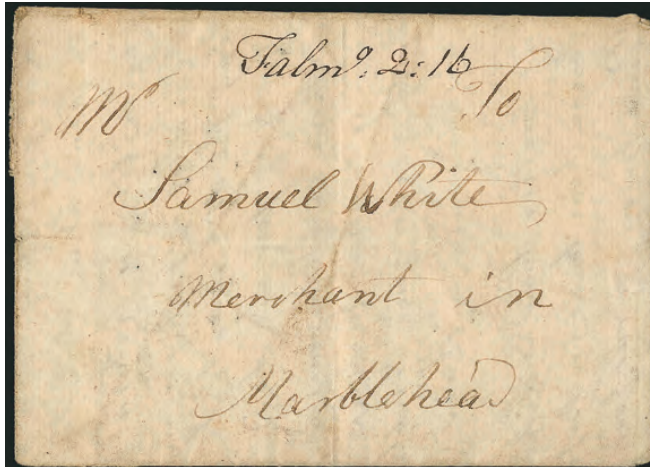 Falmº: 2:16
Mr To
Samuel White
Merchant in
Marblehead